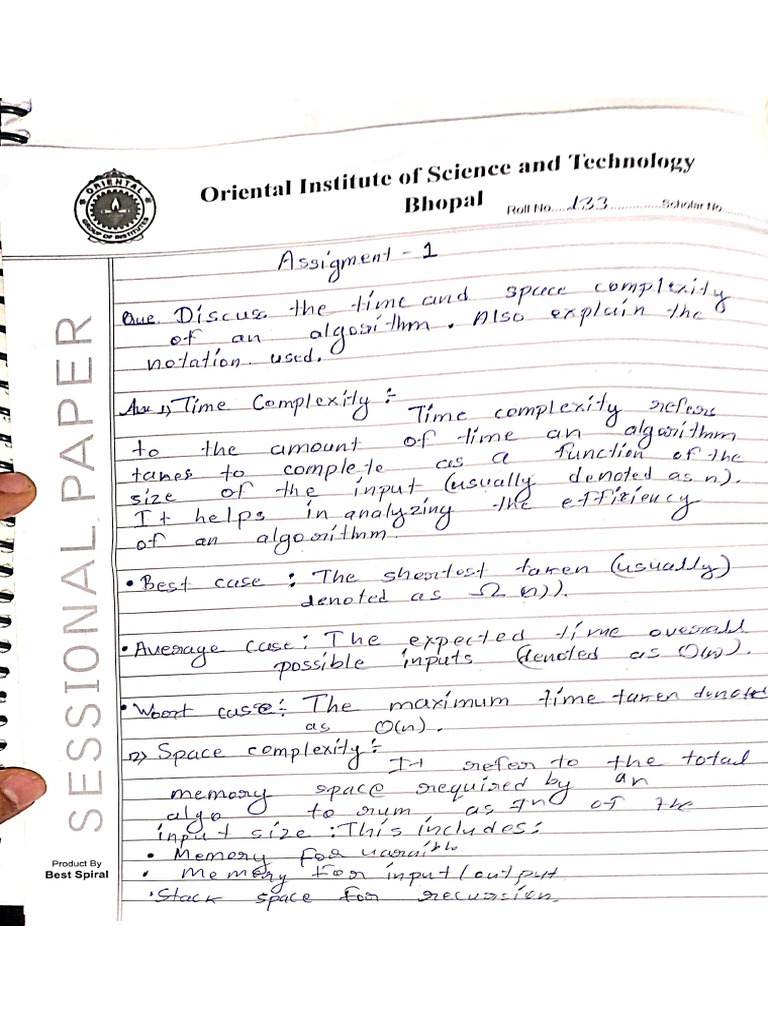 Oriental Institute of Science and Technology
Bhopal
Roll No. 133 Scholar No.
ORIENTAL
GROUP OF INSTITUTES
Assigment - 1
Que. Discuss the time and space complexity
of an algorithm. Also explain the
notation used.
Ans 1) Time Complexity :-
Time complexity refers
to the amount of time an algorithm
takes to complete as a function of the
size of the input (usually denoted as n).
It helps in analyzing the efficiency
of an algorithm.
• Best case : The shortest taken (usually)
denoted as Ω n)).
• Average case : The expected time overall
possible inputs (denoted as O(n)).
• Worst case :- The maximum time taken denoted
as O(n).
2) Space complexity :-
It refer to the total
memory space required by an
algo to rum as fn of the
input size : This includes :
• Memory for
• Memery for input/output
• Stack space for recursion.
SESSIONAL PAPER
Product By
Best Spiral